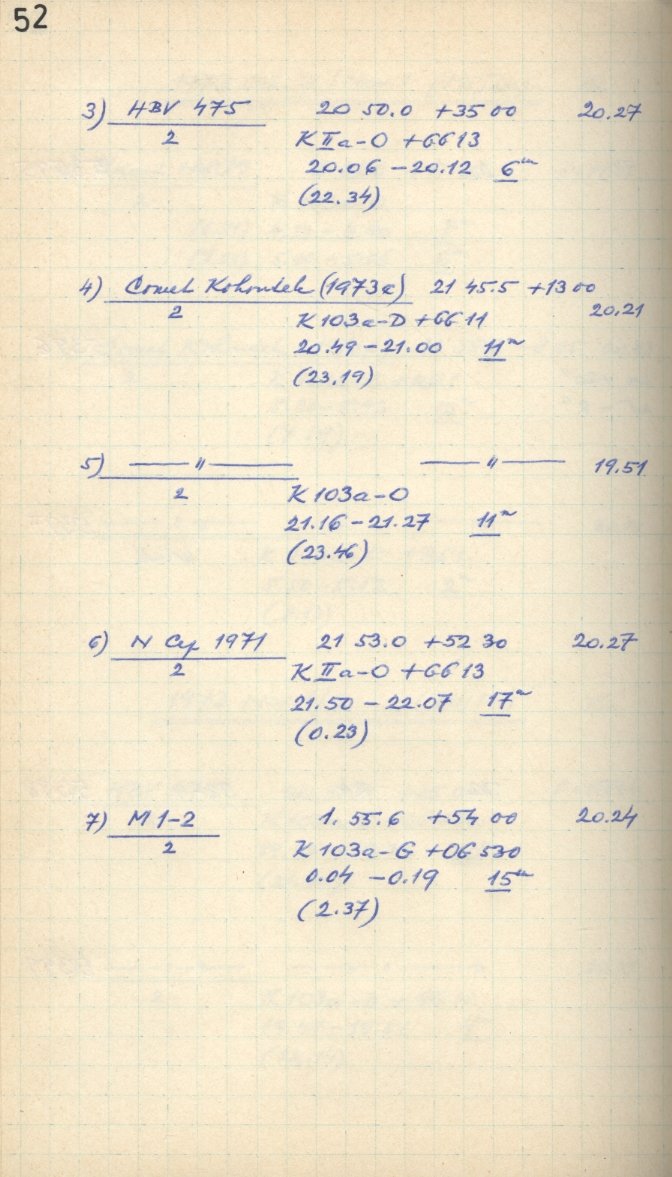 52
3) HBV 475 20 50.0 +35 00 20.27
2 K IIa-O +GG13
20.06 – 20.12 6m
(22.34)
4) Comet Kohoutek (1973e) 21 45.5 +13 00
20.21
2 K 103a-D +GG11
20.49 – 21.00 11m
(23.19)
5) —— " —— —— " —— 19.51
2 K 103a-O
21.16 – 21.27 11m
(23.46)
6) N Cep 1971 21 53.0 +52 30 20.27
2 K IIa-O +GG13
21.50 – 22.07 17m
(0.23)
7) M 1-2 1. 55.6 +54 00 20.24
2 K 103a-G +OG 530
0.04 – 0.19 15m
(2.37)